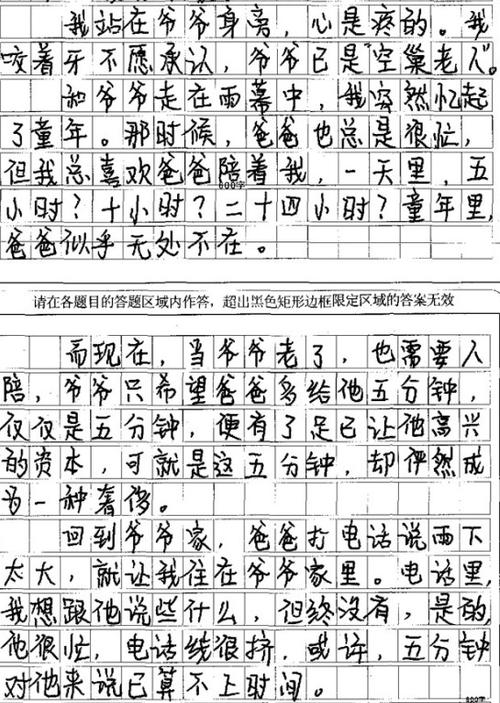 我站在爷爷身离，心是疼的。我
咬着牙不愿承认，爷爷已是"空巢老人"。
和爷爷走在雨幕中，我突然忆起
了童年。那时候，爸爸也总是很忙，
但我总喜欢爸爸陪着我，一天里，五
600字
小时？十小时？二十四小时？童年里，
爸爸似乎无处不在。
请在各题目的答题区域内作答，超出黑色矩形边框限定区域的答案无效
而现在，当爷爷老了，也需要人
陪，爷爷只希望爸爸多给他五分钟，
仅仅是五分钟，便有了足已让他高兴
的资本，可就是这五分钟，却俨然成
为一种奢侈。
回到爷爷家，爸爸打电话说雨下
太大，就让我住在爷爷家里。电话里，
我想跟他说些什么，但终没有，是的，
他很忙，电话线很挤，或许，五分钟
对他来说已算不上时间。
800字